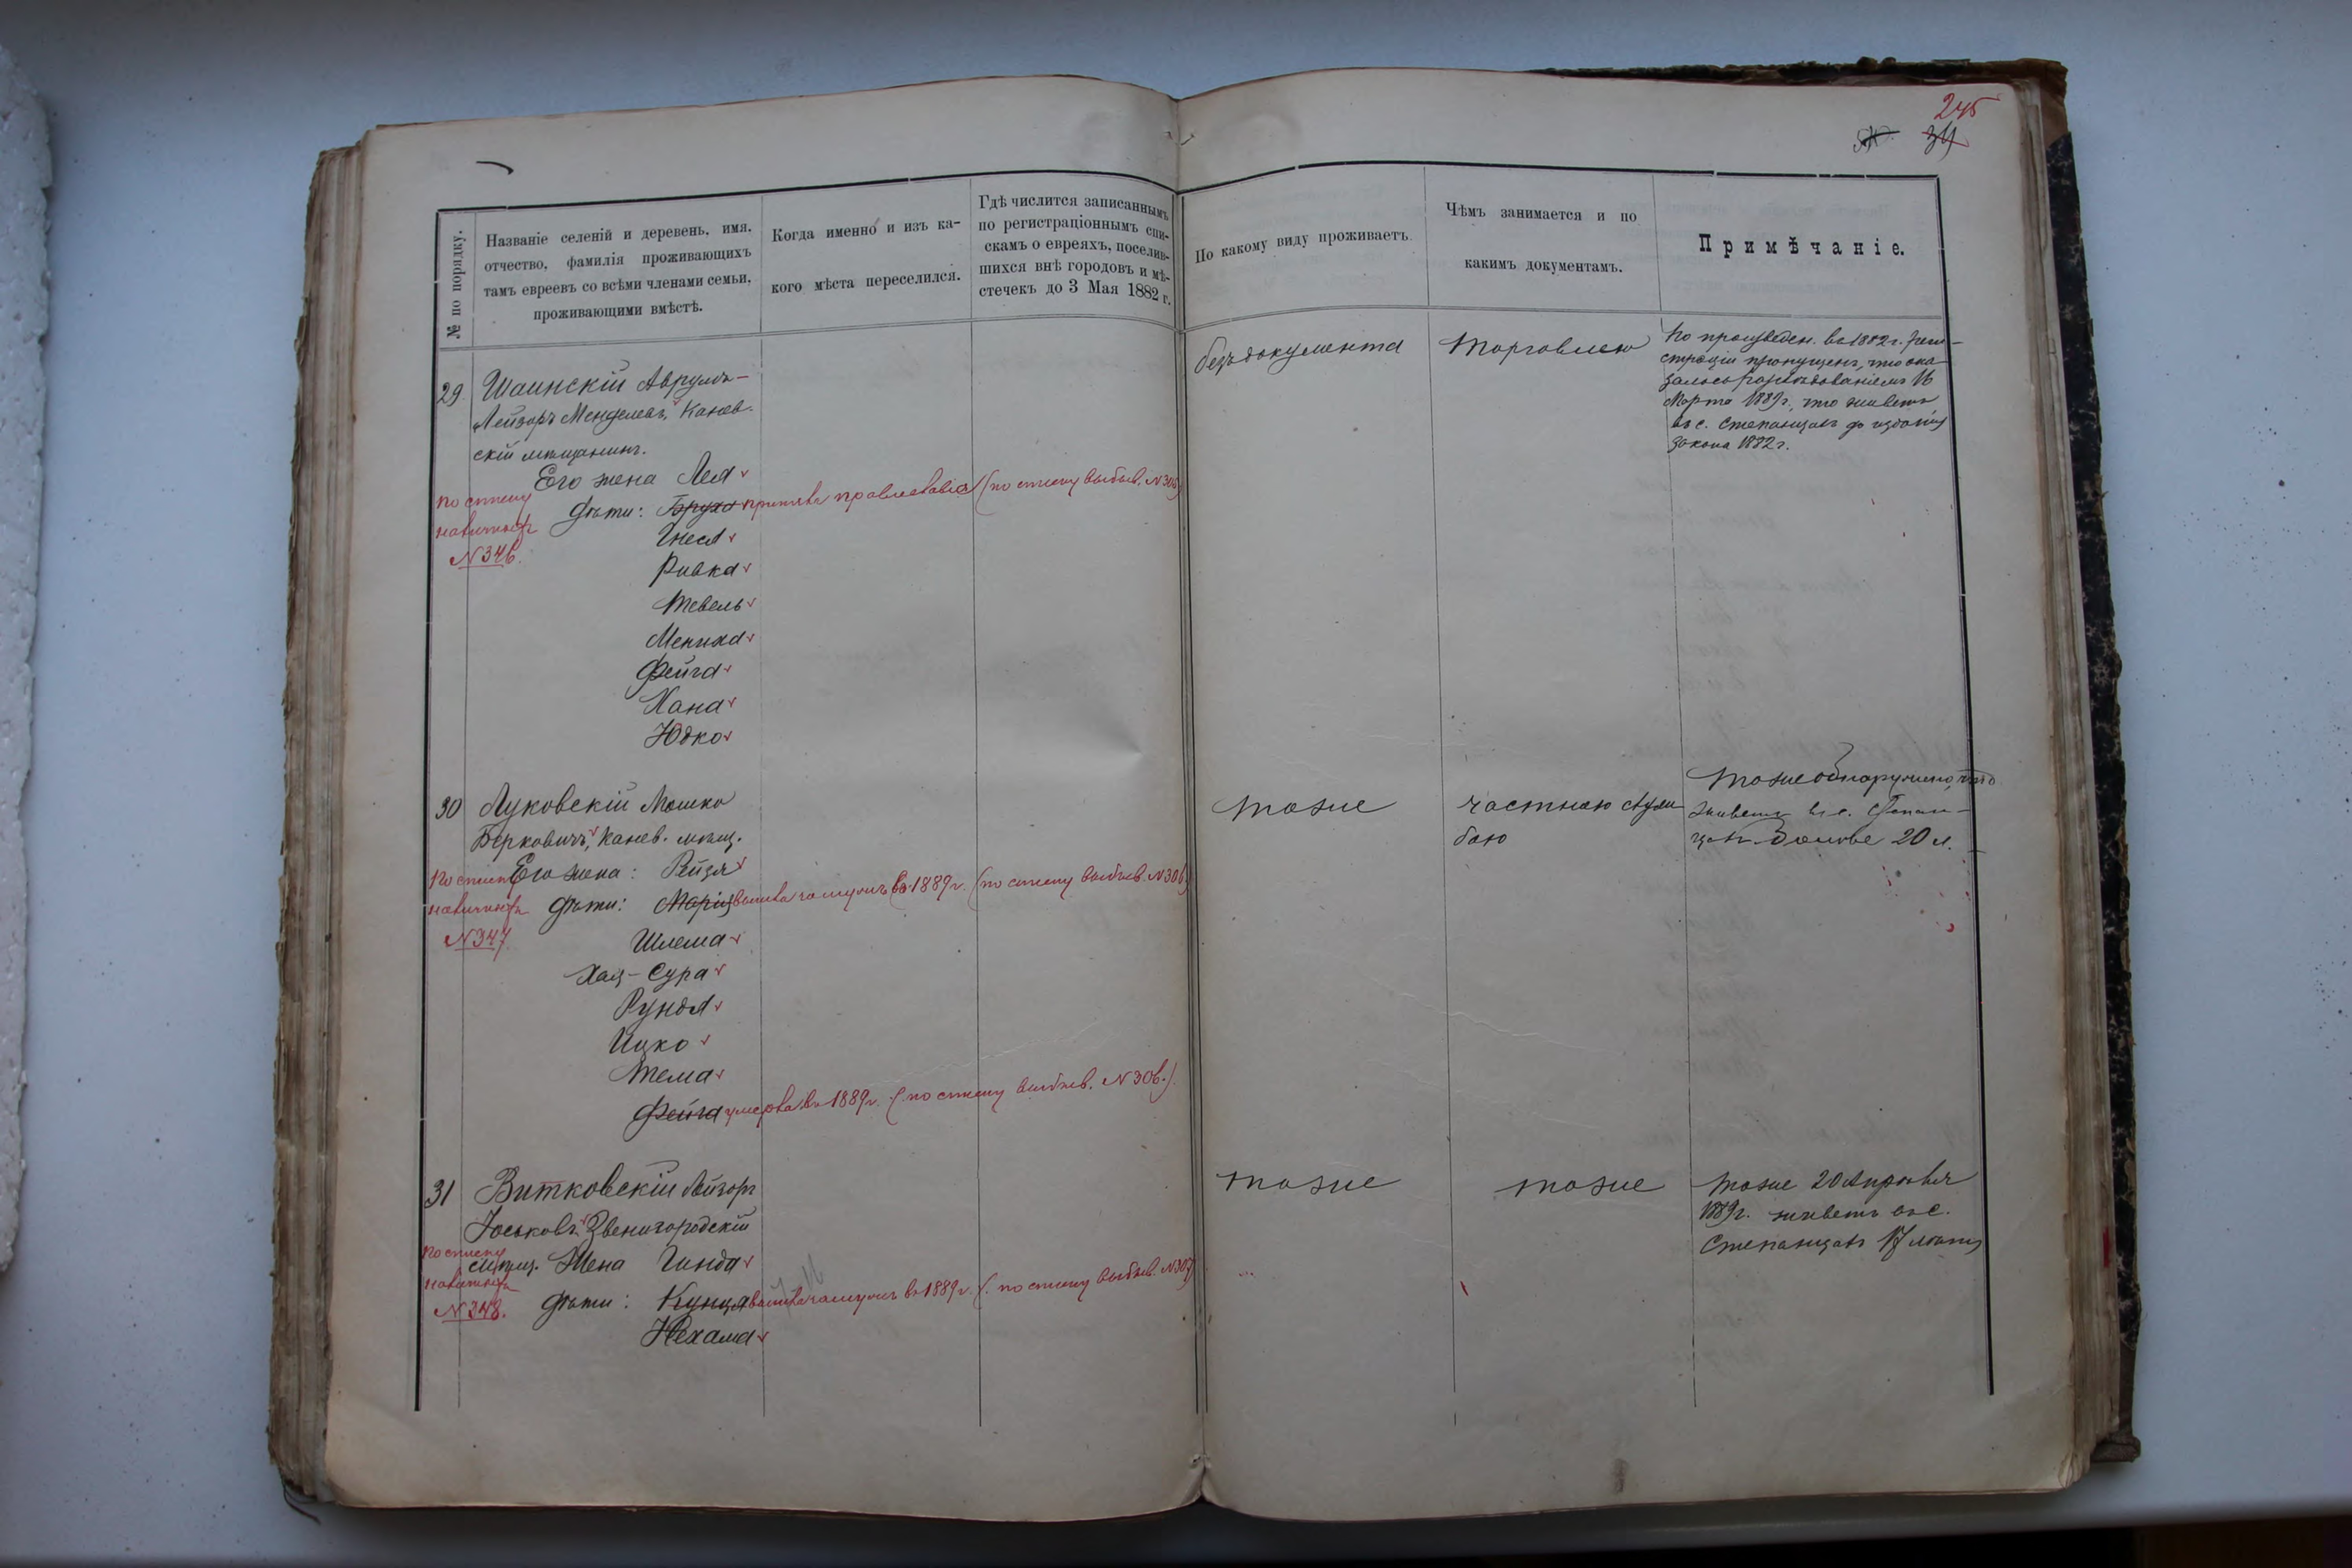 245
34
№ по порядку.
Названіе селеній и деревень, имя,
отчество, фамилія проживающихъ
тамъ евреевъ со всѣми членами семьи,
проживающими вмѣстѣ.
Когда именно и изъ ка-
кого мѣста переселился.
Гдѣ числится записаннымъ
по регистраціоннымъ спи-
скамъ о евреяхъ, поселив-
шихся внѣ городовъ и мѣ-
стечекъ до 3 Мая 1882 г.
По какому виду проживаетъ.
Чѣмъ занимается и по
какимъ документамъ.
Примѣчаніе.
29 Шаинскій Аврумъ-
Лейзоръ Менделевъ, Канев-
скій мѣщанинъ.
Его жена Лея
дѣти: Бруха приняла православіе (по списку выбыв. N 305)
Гнеся
Ривка
Тевель
Мениха
Фейга
Хана
Юдко
по списку
наличныхъ
N 346.
безъ документа
торговлею
По произведен. въ 1882 г. реги-
страціи пропущенъ, что ока-
залось разслѣдованіемъ 16
Марта 1889 г., что живетъ
въ с. Степанцахъ до изданія
закона 1882 г.
30 Луковскій Мошко
Берковичъ, Канев. мѣщ.
Его жена: Рейзя
дѣти: Марія вышла замужъ въ 1889 г. (по списку выбыв. N 306)
Шлема
Хая-Сура
Рундя
Ицко
Тема
Фейга умерла въ 1889 г. (по списку выбыв. N 306.)
По списку
наличныхъ
N 347
тоже
частною служ
бою
тоже обнаружено, что
живетъ въ с. Степан-
цахъ болѣе 20 л.
31 Витковскій Лейзоръ
Іоськовъ Звенигородскій
мѣщ. Жена Гинда
дѣти: Кунця вышла замужъ въ 1889 г. (по списку выбыв. N 307)
Нехама
По списку
наличныхъ
N 348.
тоже
тоже
тоже 20 Апрѣля
1889 г. живетъ въ с.
Степанцахъ 17 лѣтъ